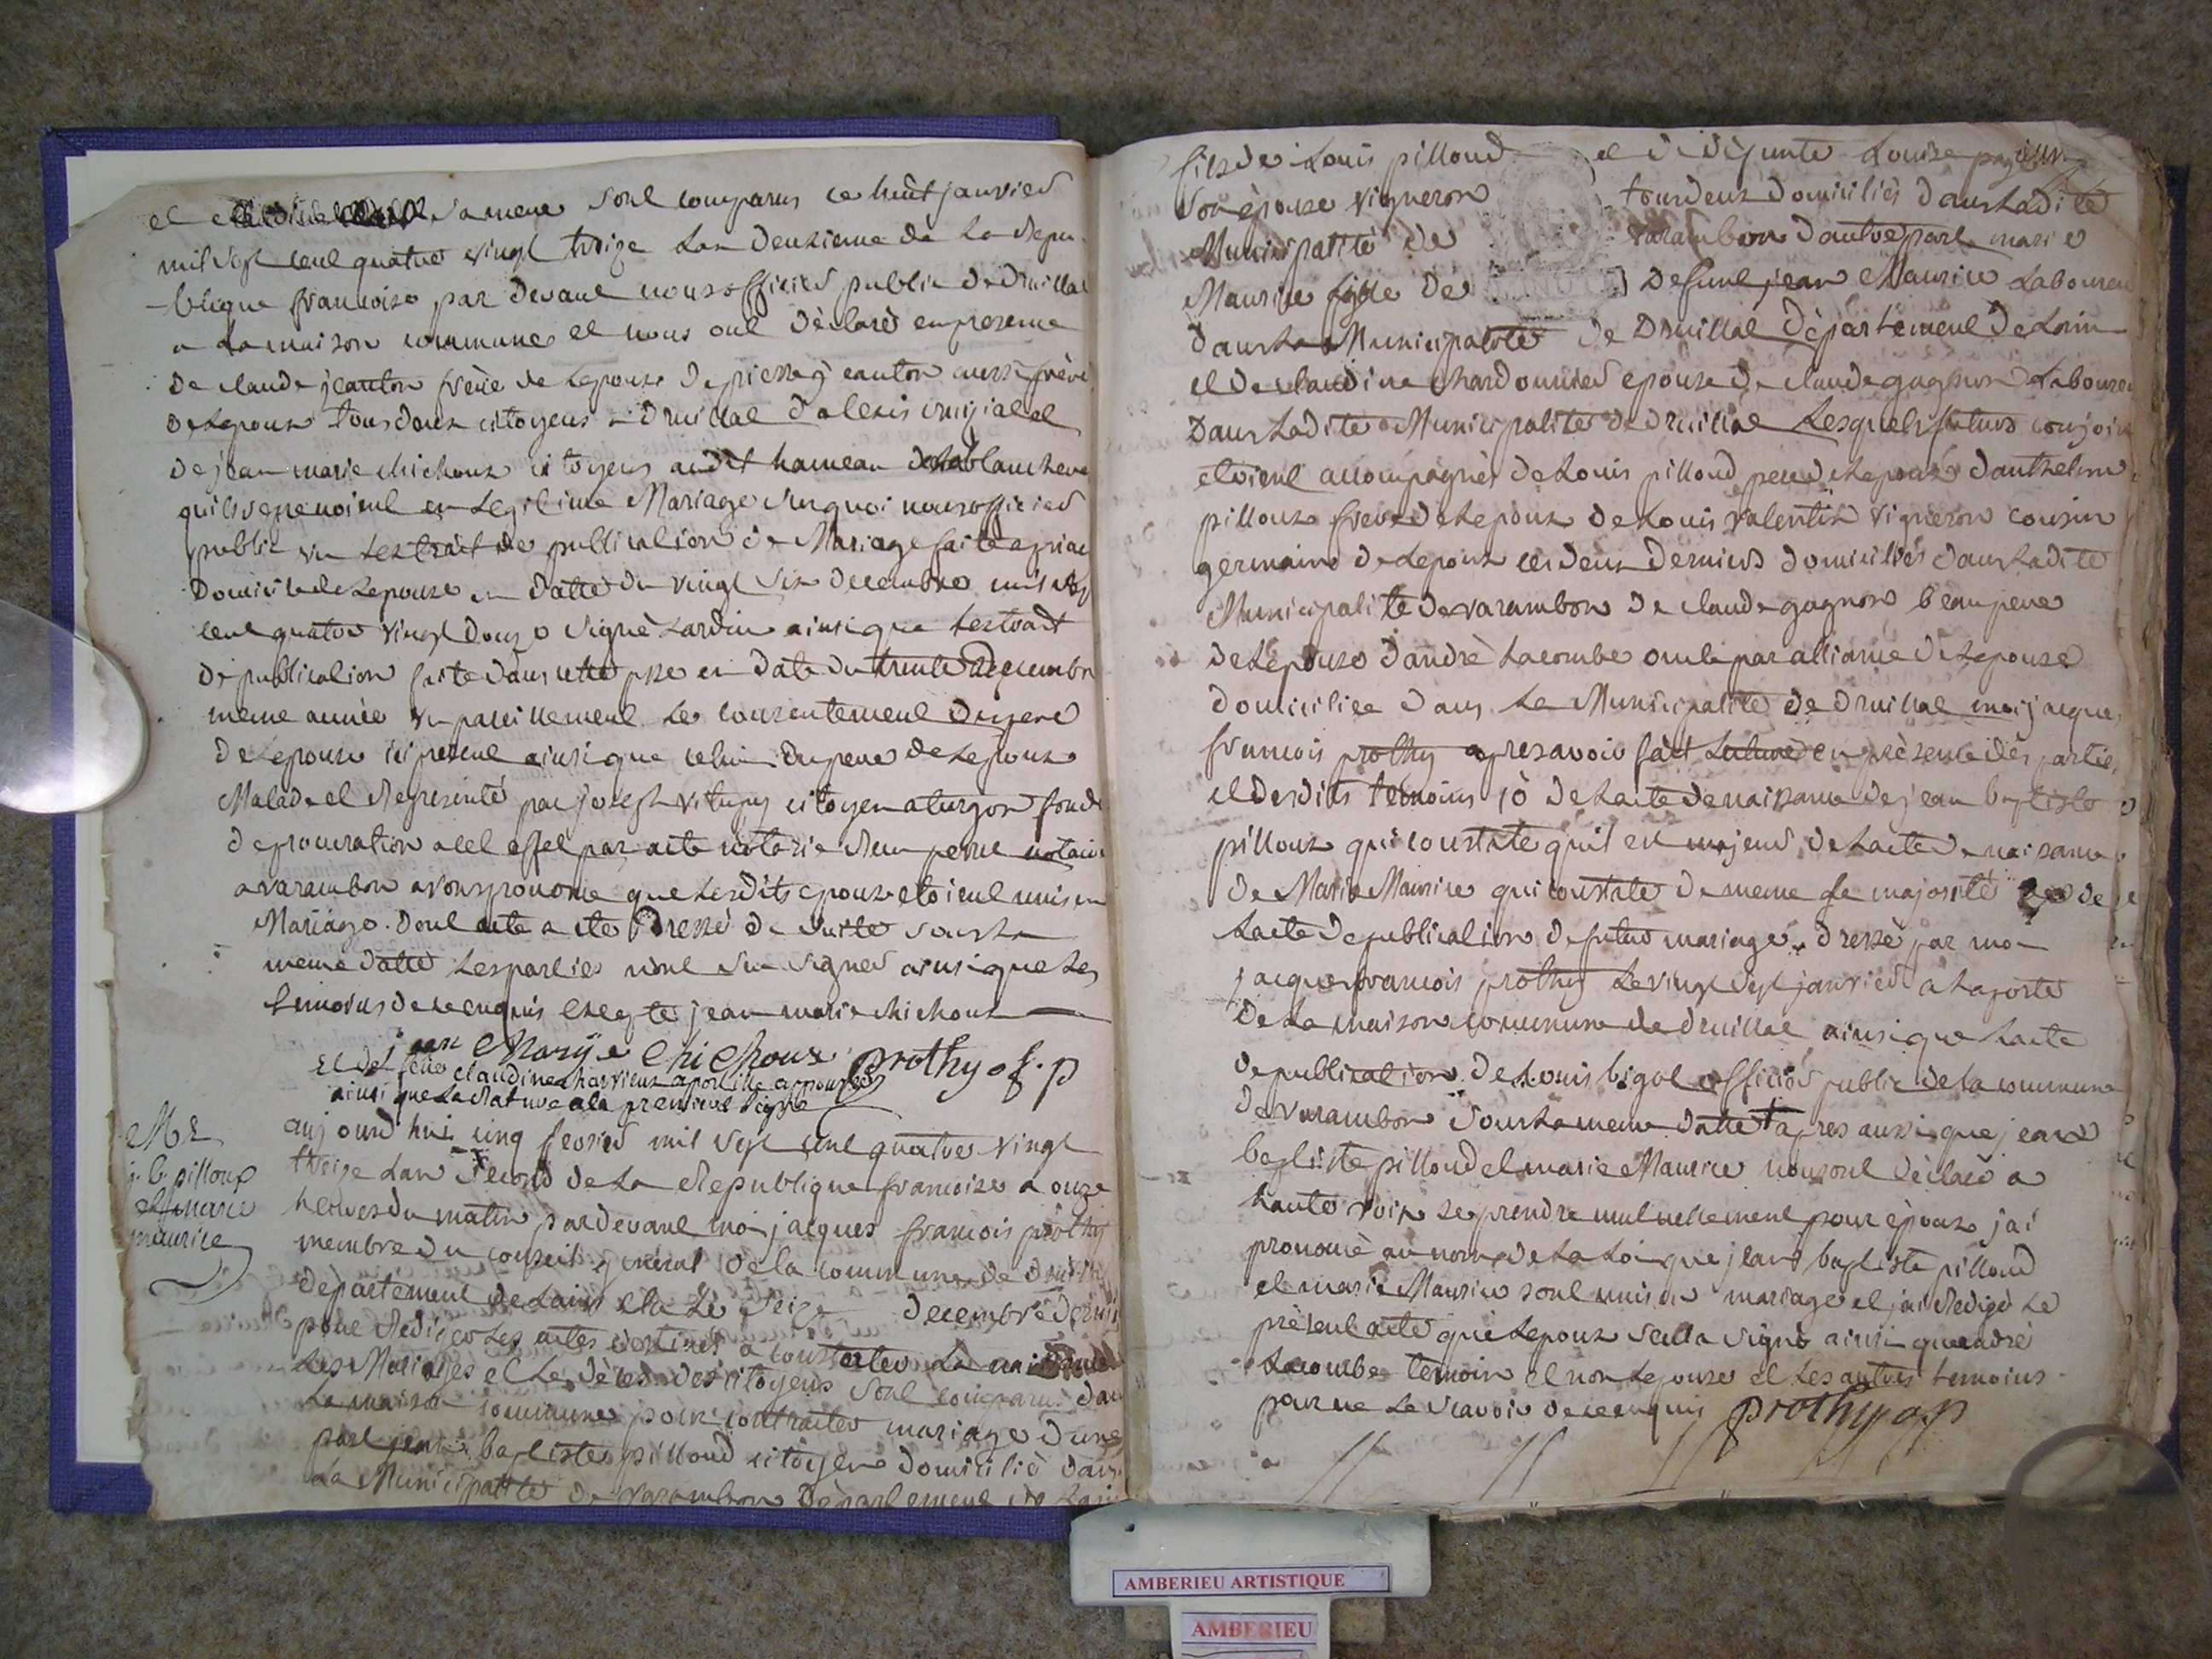 et sa mere sont comparus ce huit janvier
mil sept cent quatre vingt treize Lan deuxieme de La Repu-
blique francoise par devant nous officier public de druillat
a La maison commune et nous ont déclaré en presence
de claude jeanton frère de Lepouse de pierre jeanton aussi frère
de Lepouse tous deux citoyens a Druillat d'alexis
de jean marie chichoux citoyens audit hameau de
quils se prenoient en Legitime Mariage surquoi nous officier
public vu Lextrait de publication de Mariage faite
Domicile de Lepouse en datte du vingt six decembre mil sept
cent quatre vingt douze signé Lardin ainsi que Lextrait
de publication faite dans cette en date du trente decembre
meme année vu pareillement Le consentement du pere
de Lepouse ici present ainsi que celui du pere de Lepoux
Malade et Represente par joseph citoyen a turgon fondé
de procuration a cet effet par acte notarié Reçu notaire
a varambon avons prononcé que Lesdits epoux etoient unis en
Mariage. Dont acte a ete Dressé de suite sous La
meme datte Les parties n'ont su signer ainsi que Les
temoins de ce enquis excepte jean marie chichoux
jean Marÿe Chichoux prothy of. p
et de feue claudine charvieux apostille approuvée
ainsi que La Rature a la premiere Ligne
M. E
j. b. pilloux
et marie
maurice
aujourd'hui cinq fevrier mil sept cent quatre vingt
treize Lan second de La Republique francoise a onze
heures du matin pardevant moi jacques francois prothy
membre du conseil general de la commune de druillat
departement de Lain elu Le Seize decembre dernier
pour Rediger Les actes destinés a constater La naissance
Les Mariages et Les décès des citoyens sont comparus dans
La maison commune pour contracter mariage dune
part jean baptiste pilloud citoyen domicilié dans
La Municipalité de varambon Departement de Lain
fils de Louis pilloud et de defunte Louise
son épouse vigneron tous deux domiciliés dans Ladite
Municipalité de varambon dautre part marie
Maurice fille de defunt jean Maurice Laboureur
dans La Municipalité de Druillat Département de Lain
et de claudine chardonnier epouse de claude gagnon Laboureur
Dans Ladite Municipalité de druillat Lesquels futurs conjoints
etoient accompagnés de Louis pilloud pere de Lepoux danthelme
pilloux frere de Lepoux de Louis valentin vigneron cousin
germain de Lepoux ces deux derniers domiciliés dans Ladite
Municipalité de varambon de claude gagnon beau pere
de Lépouse dandré Lacombe oncle par alliance de Lepouse
domiciliée dans La Municipalité de druillat moi jacques
francois prothy apres avoir fait Lecture en présence des parties
et desdits temoins 1o de Lacte de naissance de jean baptiste
pilloux qui constate quil est majeur de Lacte de naissance
de Marie Maurice qui constate de meme sa majorité de
Lacte de publication de futur mariage dressé par moi
jacque francois prothy Le vingt sept janvier a La porte
de La maison commune de druillat ainsi que Lacte
de publication de Louis bigot officier public de la commune
de varambon sous La meme datte apres aussi que jean
baptiste pilloud et marie Maurice nous ont déclaré a
haute voix se prendre mutuellement pour époux jai
prononcé au nom de La Loi que jean baptiste pilloud
et marie Maurice sont unis en mariage et jai Redigé Le
présent acte que Lepoux seul a signé ainsi quandré
Lacombe temoin et non Lepouse et Les autres temoins
pour ne Le scavoir de ce enquis prothy o. p
AMBERIEU ARTISTIQUE
AMBERIEU